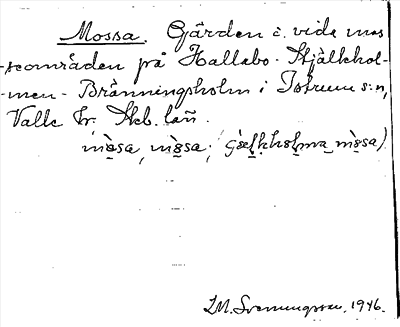 Mossa. Gården å. vida mos
-seområden på Hallabo - Stjälkhol-
-men - Bränningsholm i Istrums s:n,
Valle hr, Skb. län.
mòsa, mòsa; (sælkholma mòsa)
I.M. Svenungsson, 1946.